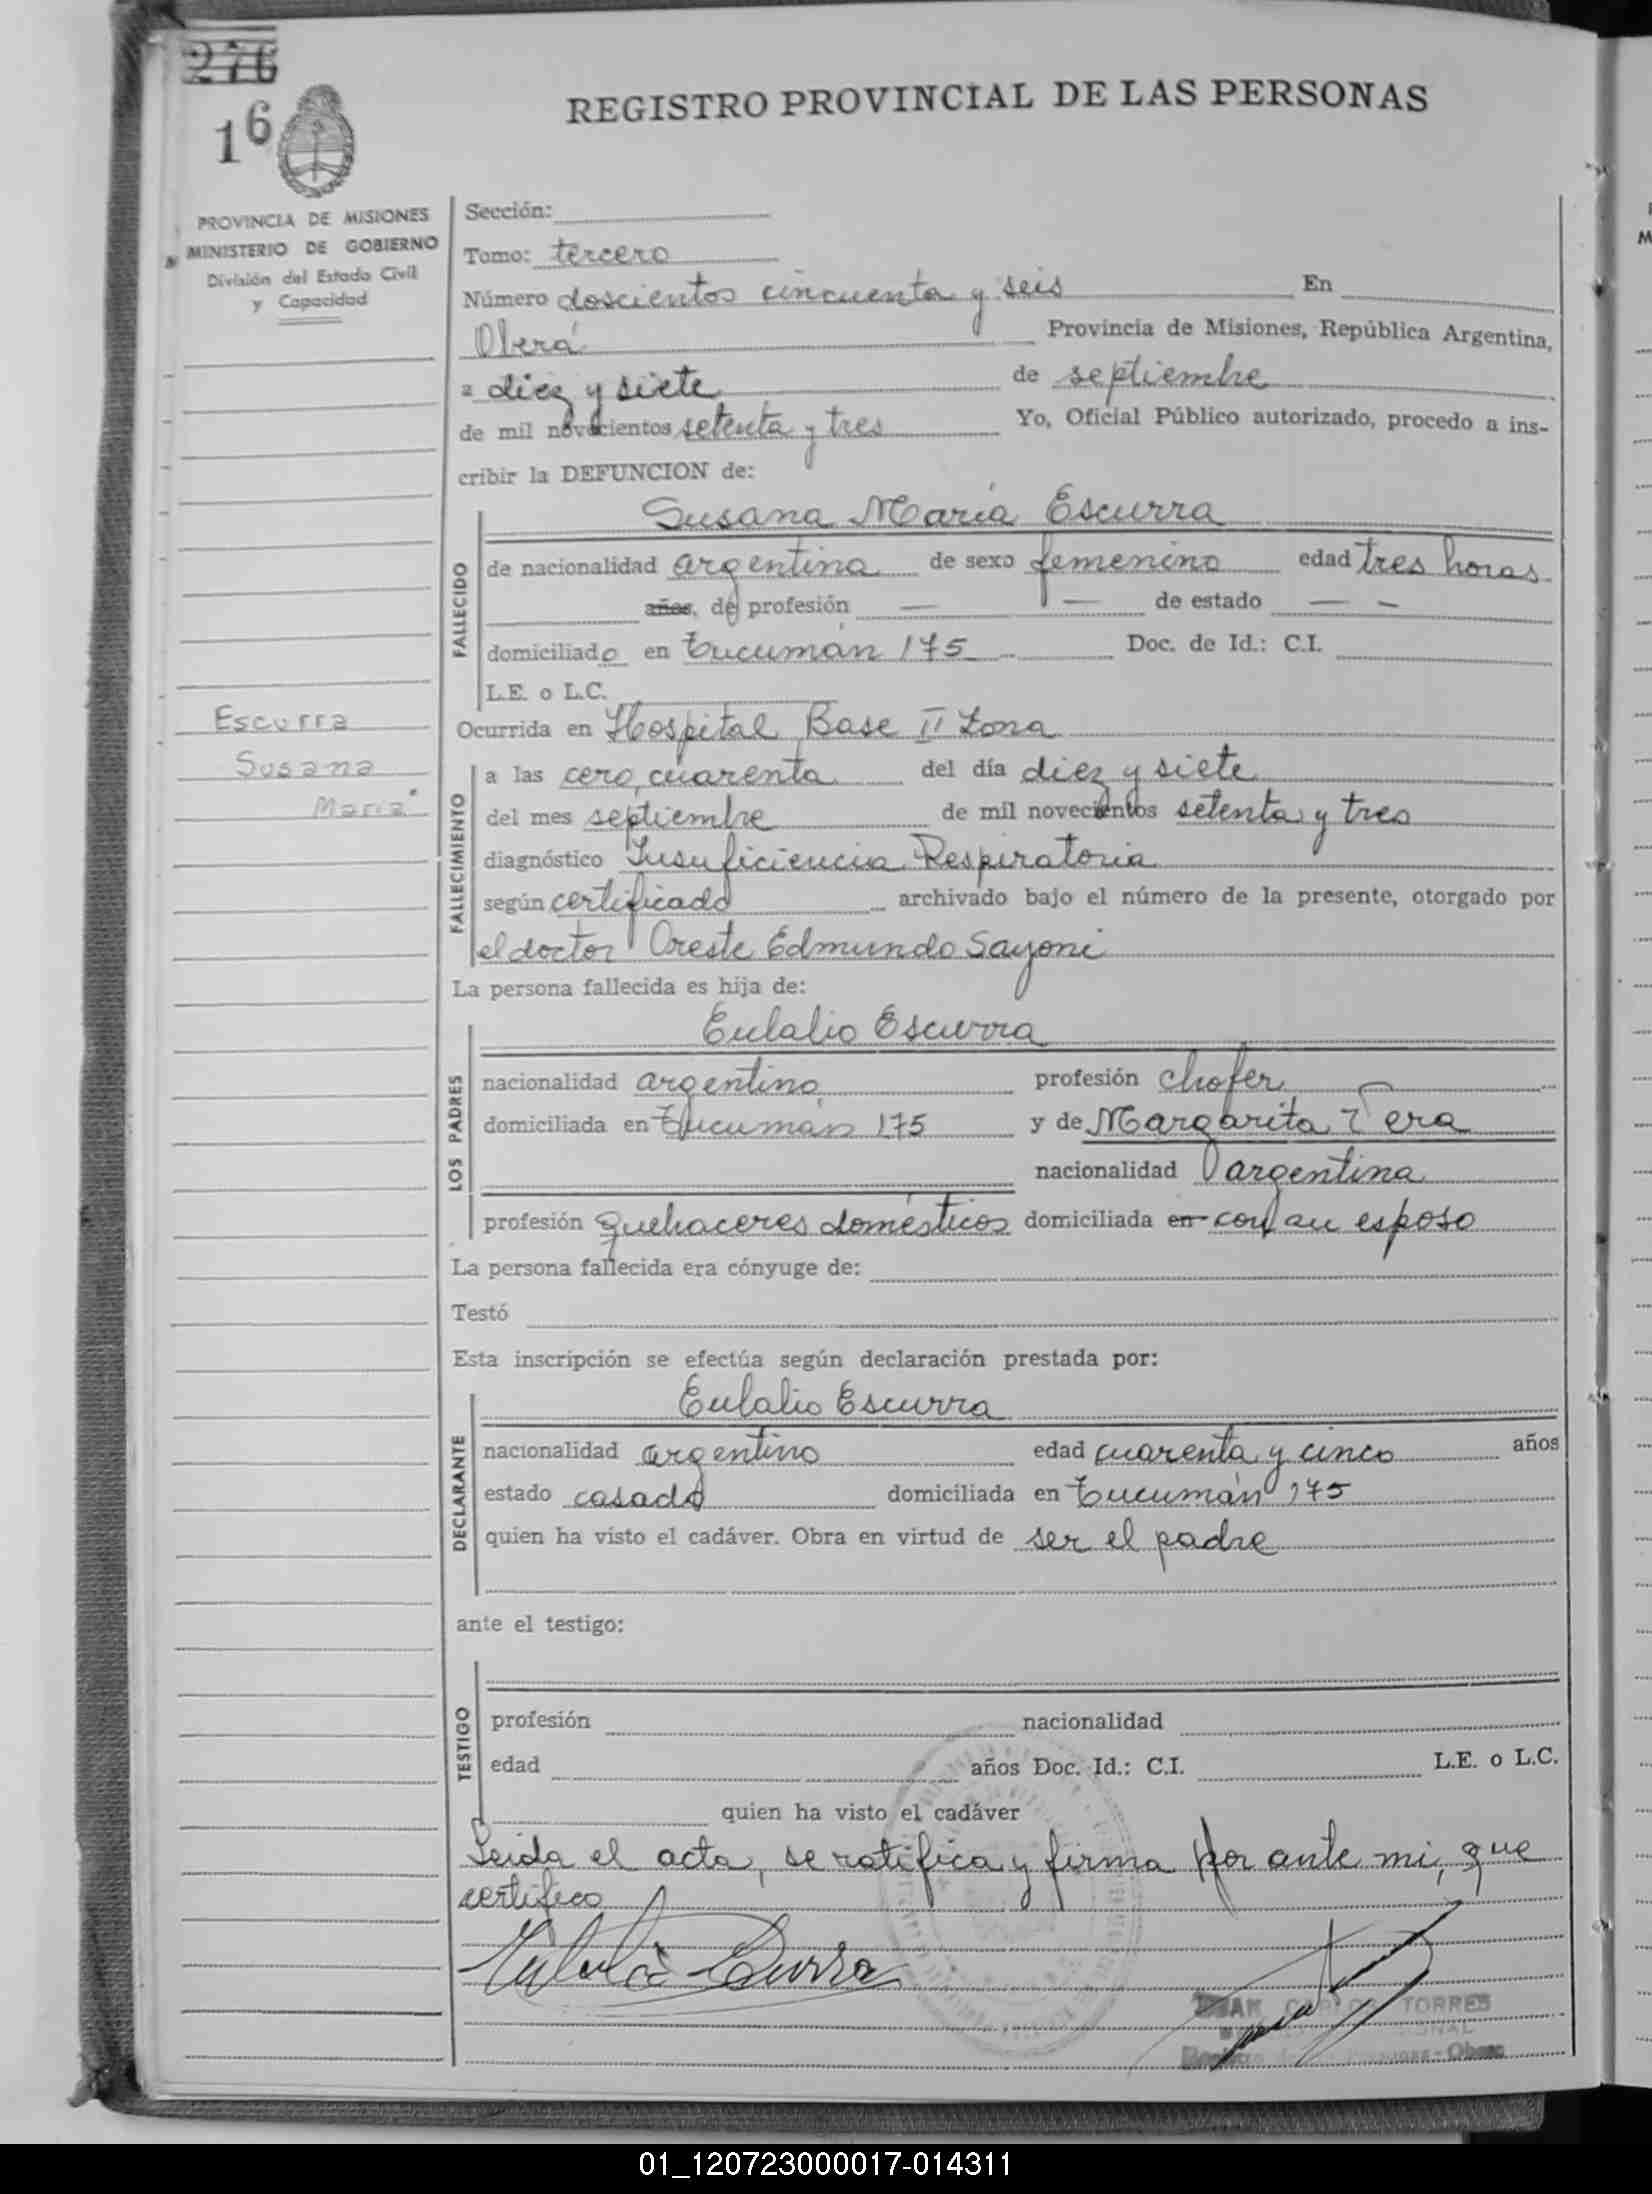 276
16
REGISTRO PROVINCIAL DE LAS PERSONAS
PROVINCIA DE MISIONES
MINISTERIO DE GOBIERNO
División del Estado Civil
y Capacidad
Sección:
Tomo: tercero
Número doscientos cincuenta y seis En
Oberá Provincia de Misiones, República Argentina,
a diez y siete de septiembre
de mil novecientos setenta y tres Yo, Oficial Público autorizado, procedo a ins-
cribir la DEFUNCION de:
Susana María Escurra
FALLECIDO
de nacionalidad argentina de sexo femenino edad tres horas
años, de profesión — — de estado — —
domiciliado en Tucumán 175 Doc. de Id.: C.I.
L.E. o L.C.
Escurra
Susana
María
Ocurrida en Hospital Base II Zona
FALLECIMIENTO
a las cero, cuarenta del día diez y siete
del mes septiembre de mil novecientos setenta y tres
diagnóstico Insuficiencia Respiratoria
según certificado archivado bajo el número de la presente, otorgado por
el doctor Oreste Edmundo Sayoni
La persona fallecida es hija de:
Eulalio Escurra
LOS PADRES
nacionalidad argentino profesión chofer
domiciliada en Tucumán 175 y de Margarita Vera
nacionalidad argentina
profesión quehaceres domésticos domiciliada en con su esposo
La persona fallecida era cónyuge de:
Testó
Esta inscripción se efectúa según declaración prestada por:
Eulalio Escurra
DECLARANTE
nacionalidad argentino edad cuarenta y cinco años
estado casado domiciliada en Tucumán 175
quien ha visto el cadáver. Obra en virtud de ser el padre
ante el testigo:
TESTIGO
profesión nacionalidad
edad años Doc. Id.: C.I. L.E. o L.C.
quien ha visto el cadáver
Leida el acta, se ratifica y firma por ante mi, que
certifico
JUAN CARLOS TORRES
01_120723000017-014311